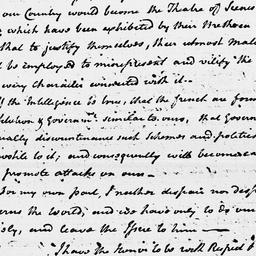 our Country would become the Theatre of Scenes
which have been exhibited by their Brethren
that to justify themselves, their utmost Mal
be employed to misrepresent and vilify the
every character connected with it.
If the Intelligence is true, that the french are form
& governmt similar to ours, that govern
discountenance such Schemes and politics
to it; and consequently will become
promote attacks on ours —
For my own part, I neither despair nor desp
the World, and we have only to do our
and leave the Issue to him —
I have the honor to be with Respect &